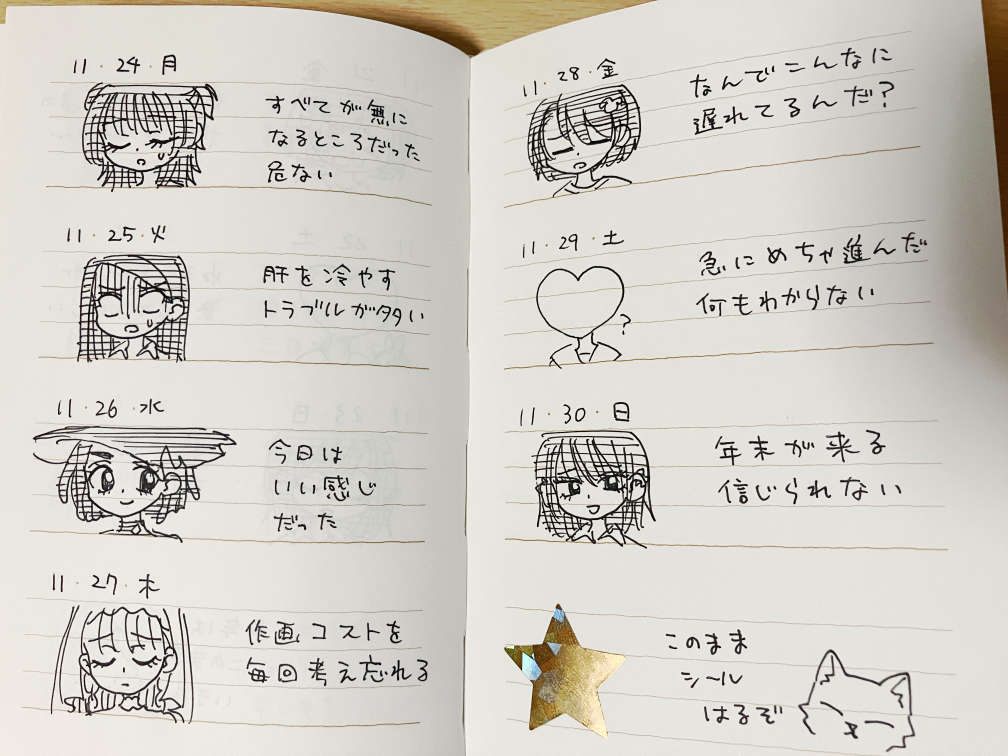 11・24・月
すべてが無に
なるところだった
危ない
11・25・火
肝を冷やす
トラブルが多い
11・26・水
今日は
いい感じ
だった
11・27・木
作画コストを
毎回考え忘れる
11・28・金
なんでこんなに
遅れてるんだ?
11・29・土
急にめちゃ進んだ
何もわからない
?
11・30・日
年末が来る
信じられない
このまま
シール
はるぞ